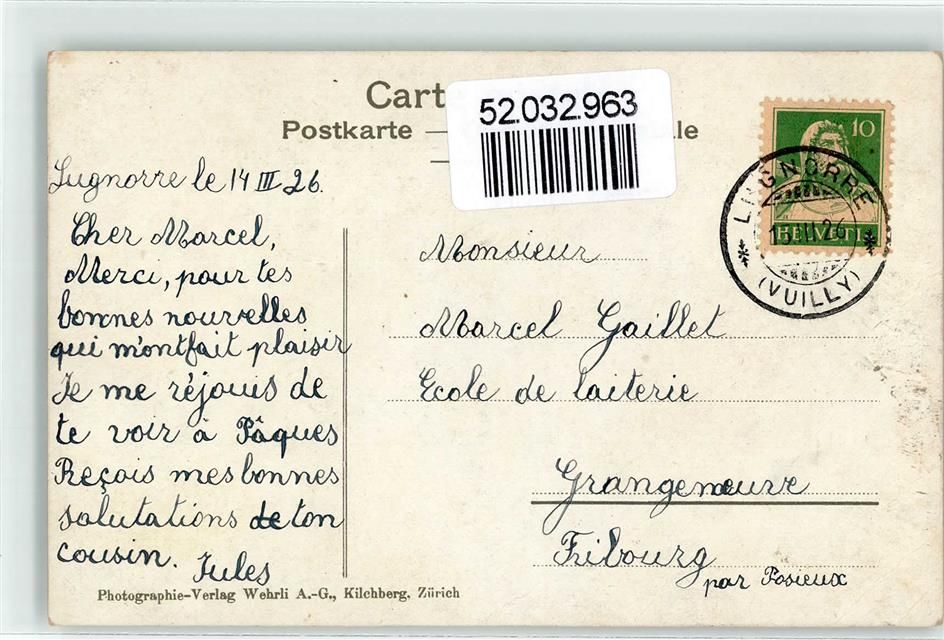 Carte
52.032.963
Postkarte — ale
10
LUGNORRE
15 III 26
HELVETIA
(VUILLY)
Lugnorre le 14 III 26.
Cher Marcel,
Merci, pour tes
bonnes nouvelles
qui m'ont fait plaisir
Je me réjouis de
te voir à Pâques
Reçois mes bonnes
salutations de ton
cousin. Jules
Monsieur
Marcel Gaillet
Ecole de laiterie
Grangeneuve
Fribourg
par Posieux
Photographie-Verlag Wehrli A.-G., Kilchberg, Zürich